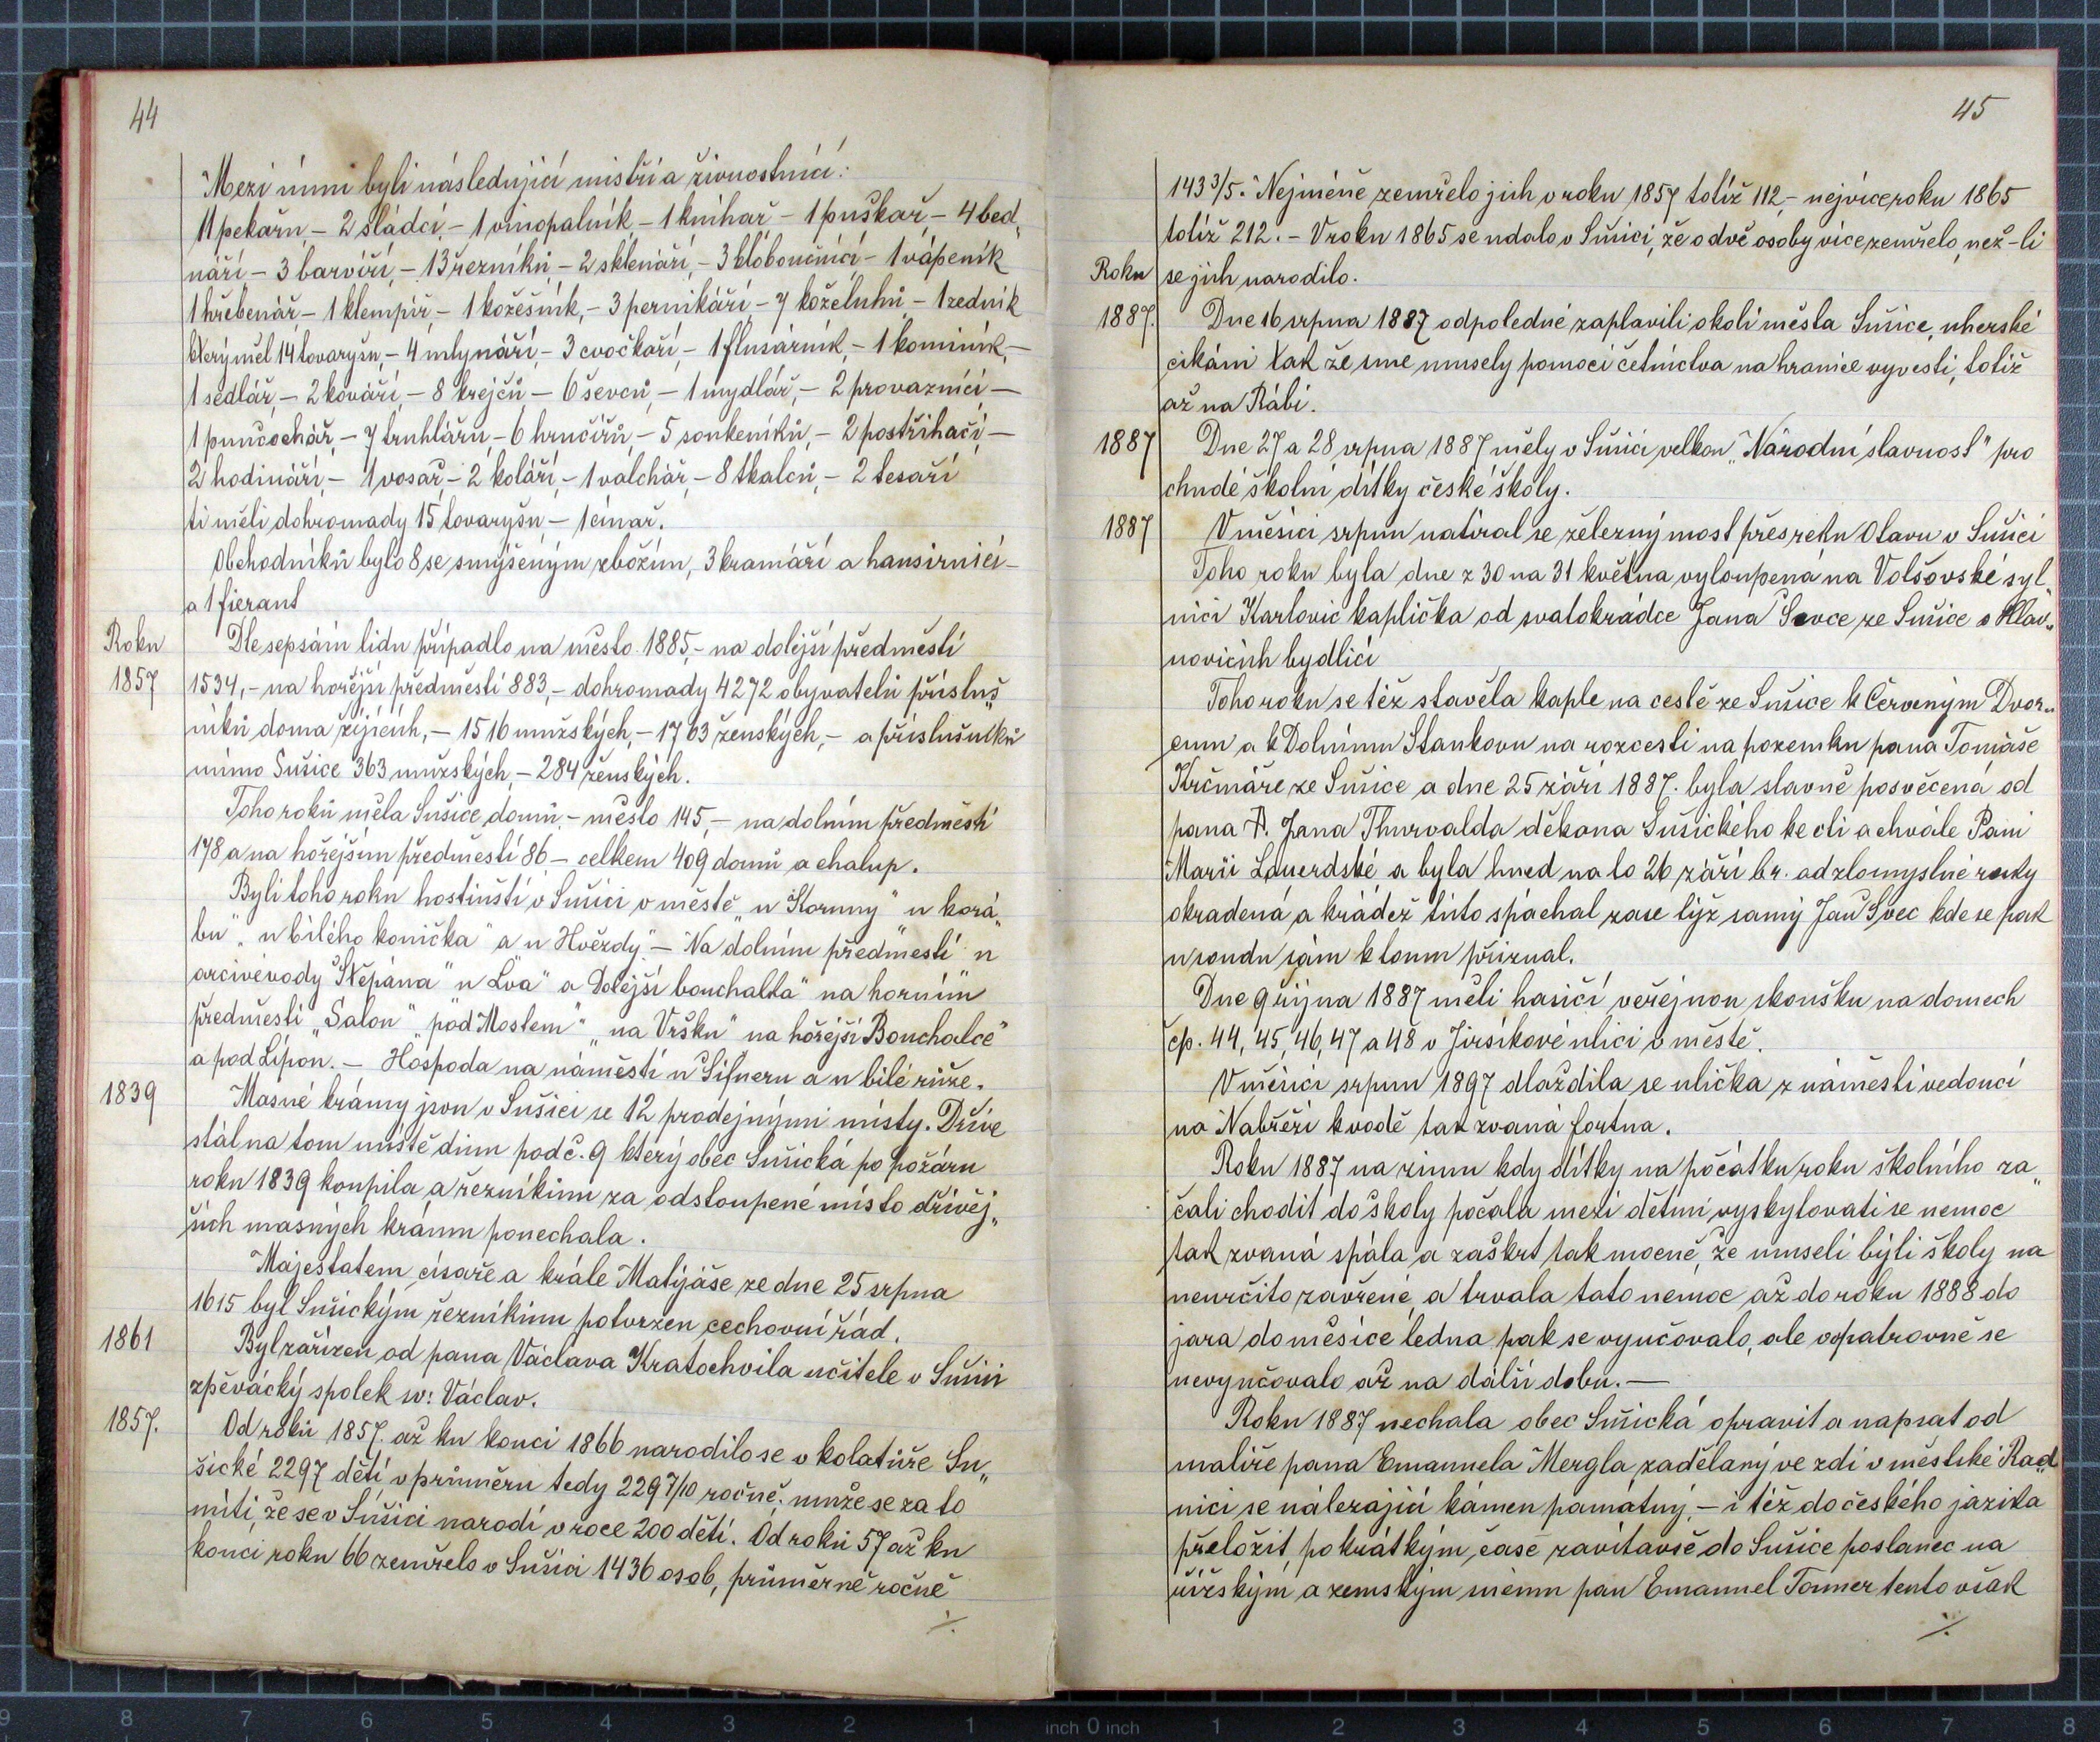 44
Mezi nimi byli následující mistři a živnostníci:
11 pekařu, – 2 sládci, – 1 vinopalník – 1 knihař – 1 puškař, – 4 bed„
náři – 3 barvíři, – 13 řezníků – 2 sklenáři, – 3 klóboučníci – 1 vápeník
1 hřebenář – 1 klempíř, – 1 kožešník, – 3 pernikáři – 7 koželuhů – 1 zedník
který měl 14 tovaryšu, – 4 mlynáři, – 3 cvočkaři, – 1 flusárník, – 1 kominík, –
1 sedlář, – 2 kováři, – 8 krejčů – 6 ševců, – 1 mydlář, – 2 provazníci –
1 punčochář, – 7 truhlářu, – 6 hrnčířů – 5 soukeníků, – 2 postřihači, –
2 hodináři, – 1 vosař, – 2 koláři, – 1 valchář, – 8 tkalců, – 2 tesaři
ti měli dohromady 15 tovaryšu – 1 cínař.
Obchodníků bylo 8 se smýšeným zbožím, 3 kramáři a hausirníci –
a 1 fierant
Roku
Dle sepsání lidu připadlo na město 1885, – na dolejší předměstí
1857
1534, – na hořejší předměstí 883, – dohromady 4272 obyvatelů přísluš„
níků doma žijících, – 1516 mužských, – 1763 ženských, – a příslušníků
mimo Sušice 363 mužských, – 284 ženských.
Toho roků měla Sušice domů, – město 145, – na dolním předměstí
178 a na hořejším předměstí 86 – celkem 409 domů a chalup.
Byli toho roku hostinští v Sušici v městě „u Koruny" u korá„
bu" „u bílého konička" a u Hvězdy" – Na dolním předměstí u
arcivévody Štěpána" u Lva" a Dolejší bouchalka" na horním
předměstí „Salon" „pod Mostem" „na Vršku" na hořejší Bouchalce"
a pod Lípou. – Hospoda na náměstí u Šifneru a u bílé růže.
1839
Masné krámy jsou v Sušici se 12 prodejnými místy. Dříve
stál na tom místě dům pod č. 9 který obec Sušická po požáru
roku 1839 koupila a řezníkům za odstoupené místo dřívěj„
ších masných krámu ponechala.
Majestatem císaře a krále Matyáše ze dne 25 srpna
1615 byl Sušickým řezníkům potvrzen cechovní řád.
1861
Byl zařízen od pana Václava Kratochvila učitele v Sušici
zpěvácký spolek sv: Václav.
1857.
Od roků 1857. až ku konci 1866 narodilo se v kolatuře Su„
šické 2297 dětí, v průměru tedy 229 7/10 ročně. muže se za to
míti, že se v Sušici narodí v roce 200 dětí. Od roků 57 až ku
konci roku 66 zemřelo v Sušici 1436 osob, průměrně ročně
./.
45
143 3/5. Nejméně zemřelo jich v roku 1857 totiž 112, – nejvíce roku 1865
totiž 212. – V roku 1865 se udalo v Sušici, že o dvě osoby více zemřelo, než-li
Roku
se jich narodilo.
1887.
Dne 16 srpna 1887 odpoledne zaplavili okolí města Sušice, uherské
cikáni tak že sme musely pomoci četnictva na hranice vyvesti, totiž
až na Rábí.
1887
Dne 27 a 28 srpna 1887 měly v Sušici velkou „Národní slavnost" pro
chudé školní dítky české školy.
1887
V měsíci srpnu natíral se železný most přes řeku Otavu v Sušici
Toho roku byla dne z 30 na 31 května vyloupená na Volšovské syl„
nici Karlovic kaplička od svatokrádce Jana Ševce ze Sušice v Hlav„
novicích bydlící
Toho roku se též stavěla kaple na cestě ze Sušice k Červeným Dvor„
cum a k Dolnímu Stankovu na rozcestí na pozemku pana Tomáše
Krčmáře ze Sušice a dne 25 září 1887. byla slavně posvěcena od
pana P. Jana Thurvalda děkana Sušického ke cti a chvále Paní
Marii Lourdské a byla hned na to 26 září br. od zlomyslné ruky
okradená a krádež tuto spáchal zase týž samý Jan Švec kde se pak
u soudu sám k tomu přiznal.
Dne 9 října 1887 měli hasiči veřejnou skoušku na domech
čp. 44, 45, 46, 47 a 48 v Jirsíkové ulici v městě.
V měsíci srpnu 1897 dlaždila se ulička z náměstí vedoucí
na Nabřeži k vodě tak zvaná fortna.
Roku 1887 na zimu kdy dítky na počátku roku školního za„
čali chodit do školy počala mezi dětmi vyskytovati se nemoc
tak zvaná spála a záškrt tak mocně, že museli býti školy na
neurčito zavřené, a trvala tato nemoc až do roku 1888 do
jara do měsíce ledna, pak se vyučovalo, ale opatrovně se
nevyučovalo až na dálší dobu. —
Roku 1887 nechala obec Sušická opravit a napsat od
malíře pana Emanuela Mergla zadělaný ve zdi v městské Rad„
nici se nálezající kámen památný, – i též do českého jazika
přeložit, po krátkým čase zavítavše do Sušice poslanec na
říšským a zemským sněmu pan Emanuel Tonner tento však
./.
9 8 7 6 5 4 3 2 1 inch 0 inch 1 2 3 4 5 6 7 8